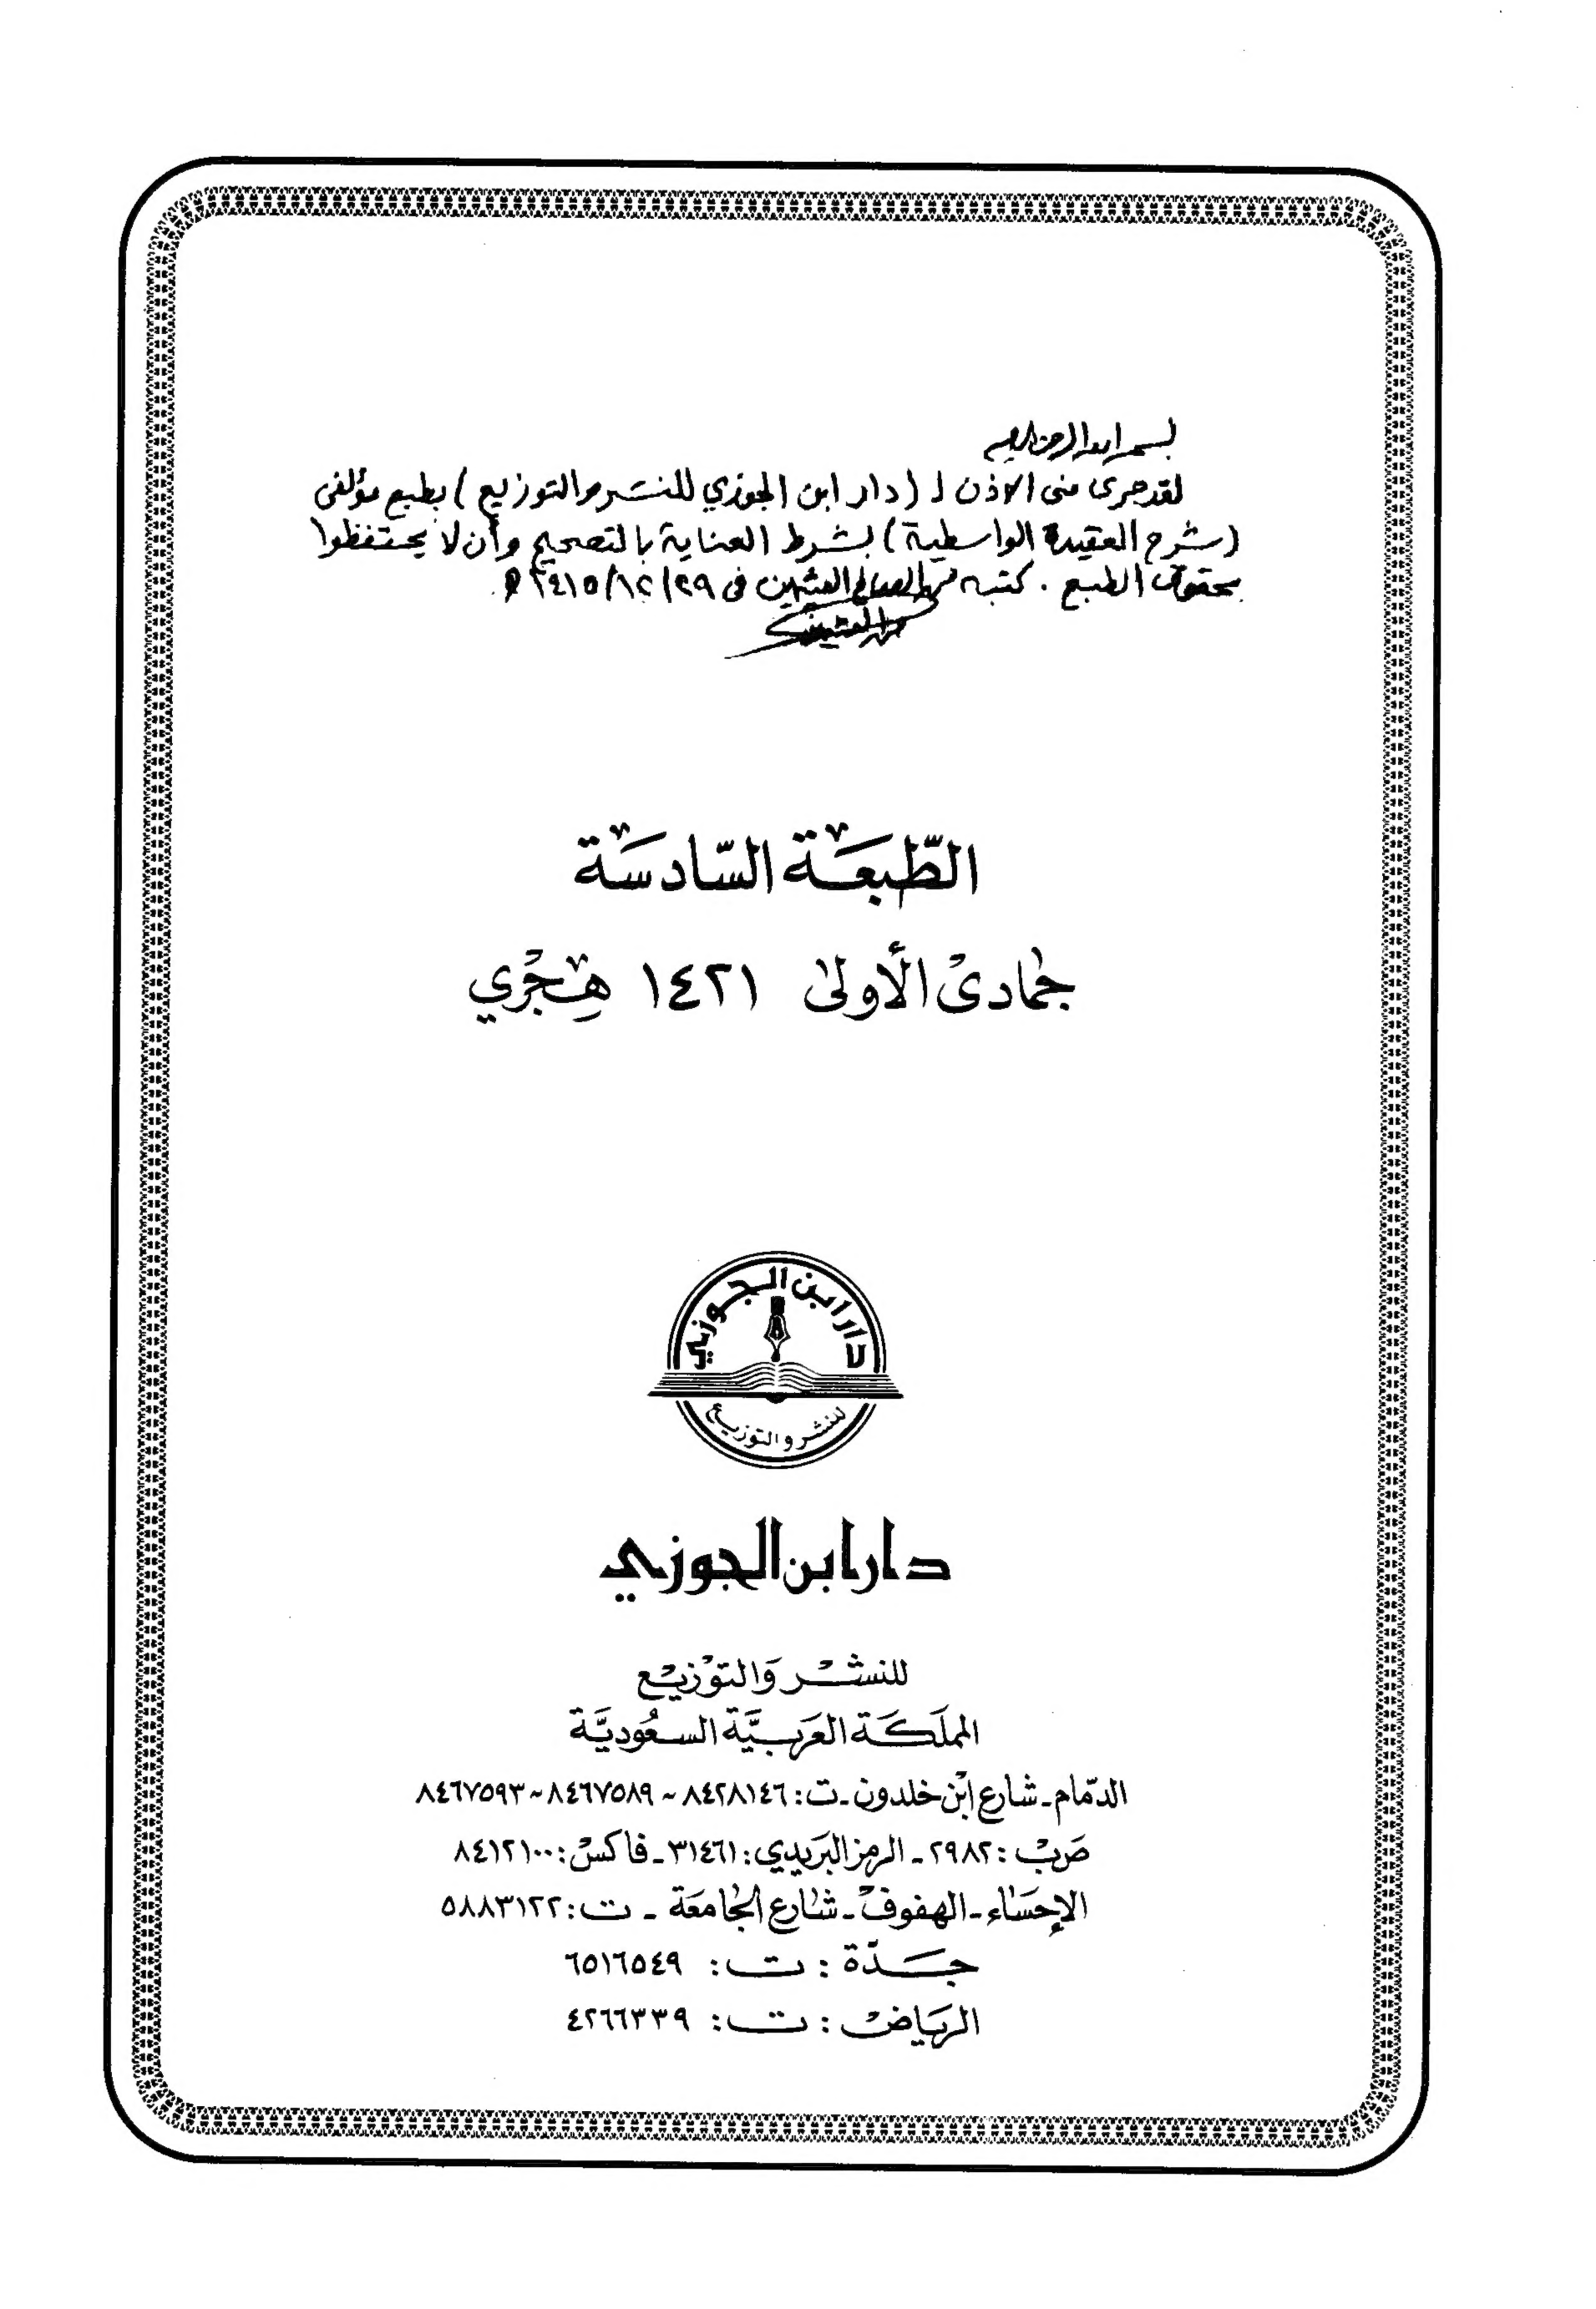 بسم الله الرحمن الرحيم
لقد جرى منى الاذن لـ (دار ابن الجوزي للنشر والتوزيع) بطبع مؤلفى
(شرح العقيدة الواسطية) بشرط العناية بالتصحيح وأن لا يحتفظوا
بحقوق الطبع . كتبه محمد الصالح العثيمين فى ٢٩/١٢/١٤١٥ هـ
محمد العثيمين
الطّبعَة السّادسَة
جُمادىْ الأولىٰ ١٤٢١ هِجْري
دار ابن الجوزي
للنشر والتوزيع
دار ابن الجوزي
للنشْر وَالتوْزيْع
المملَكَة العَرَبيَّة السعُوديَّة
الدمّام - شارع ابْن خلدون - ت : ٨٤٢٨١٤٦ ~ ٨٤٦٧٥٨٩ ~ ٨٤٦٧٥٩٣
صَ‌بْ : ٢٩٨٢ - الرمز البَريدي : ٣١٤٦١ - فاكسْ : ٨٤١٢١٠٠
الإحسَاء - الهفوفْ - شارع الجامعَة - ت : ٥٨٨٣١٢٢
جَدّة : ت : ٦٥١٦٥٤٩
الريَاضْ : ت : ٤٢٦٦٣٣٩